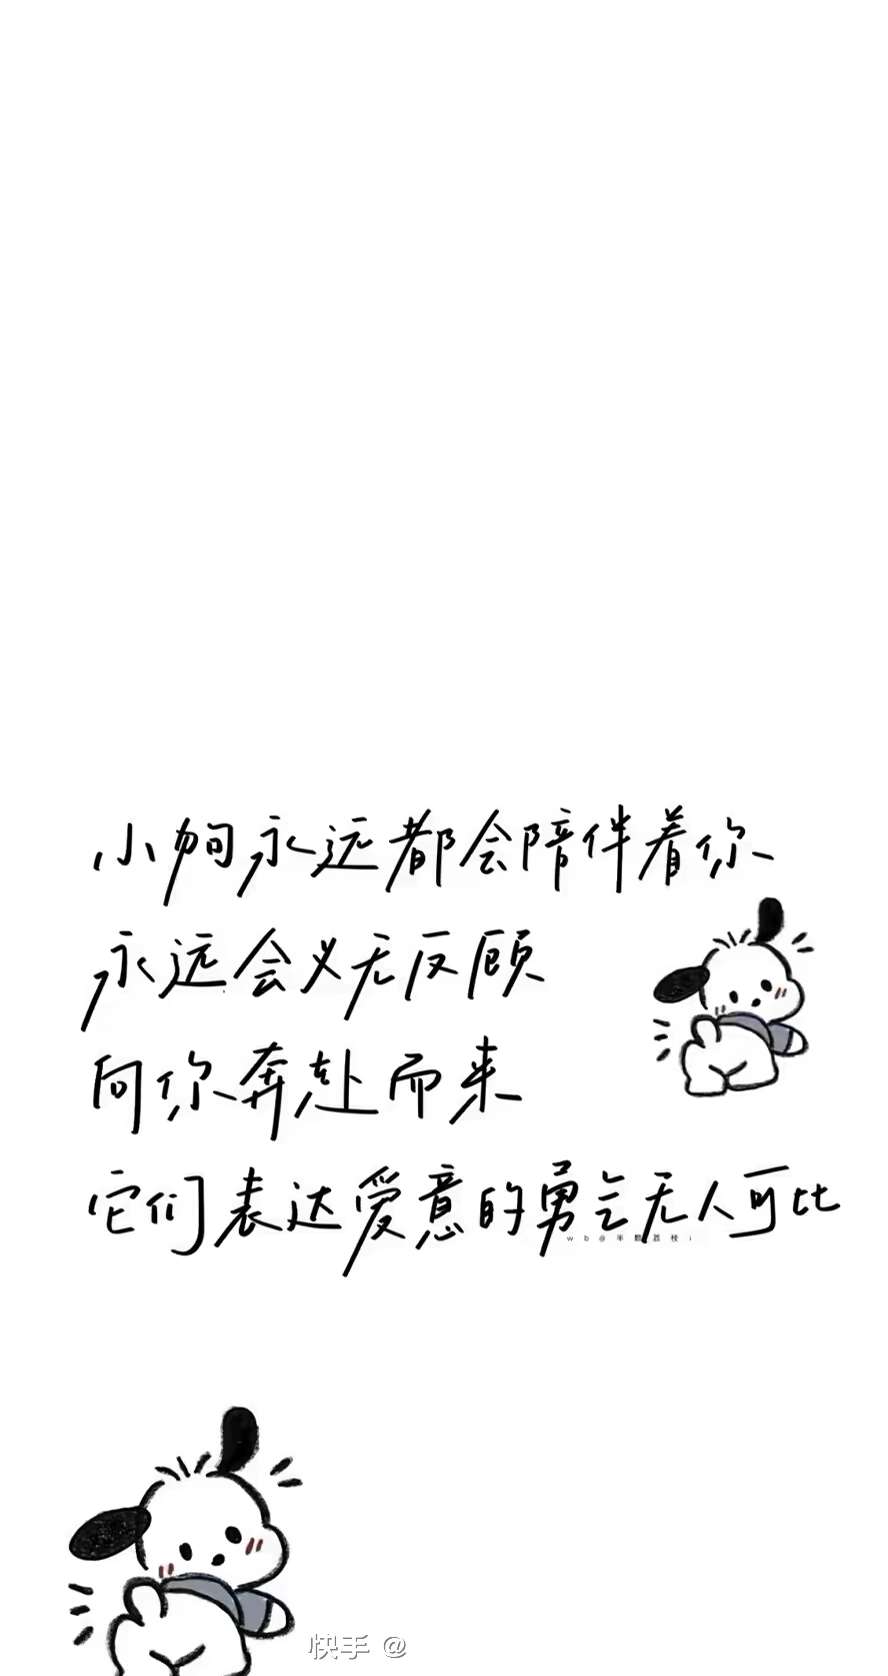 小狗永远都会陪伴着你
永远会义无反顾
向你奔赴而来
它们表达爱意的勇气无人可比
快手 @